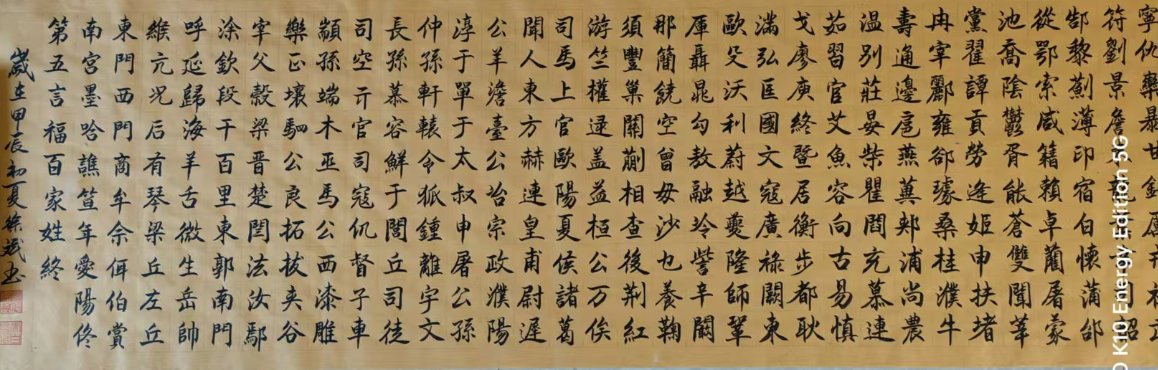 符劉景詹
郜黎薊薄印宿白懷蒲邰
從鄂索咸籍賴卓藺屠蒙
池喬陰鬱胥能蒼雙聞莘
黨翟譚貢勞逄姬申扶堵
冉宰酈雍郤璩桑桂濮牛
壽通邊扈燕冀郟浦尚農
溫別莊晏柴瞿閻充慕連
茹習宦艾魚容向古易慎
戈廖庾終暨居衡步都耿
滿弘匡國文寇廣祿闕東
歐殳沃利蔚越夔隆師鞏
厙聶晁勾敖融冷訾辛闞
那簡饒空曾毋沙乜養鞠
須豐巢關蒯相查後荊紅
游竺權逯盖益桓公万俟
司馬上官歐陽夏侯諸葛
聞人東方赫連皇甫尉遲
公羊澹臺公冶宗政濮陽
淳于單于太叔申屠公孫
仲孫軒轅令狐鍾離宇文
長孫慕容鮮于閭丘司徒
司空亓官司寇仉督子車
顓孫端木巫馬公西漆雕
樂正壤駟公良拓拔夾谷
宰父穀梁晋楚閆法汝鄢
涂欽段干百里東郭南門
呼延歸海羊舌微生岳帥
緱亢況后有琴梁丘左丘
東門西門商牟佘佴伯賞
南宮墨哈譙笪年愛陽佟
第五言福百家姓終
歲在甲辰初夏徐斌书
K10 Energy Edition 5G